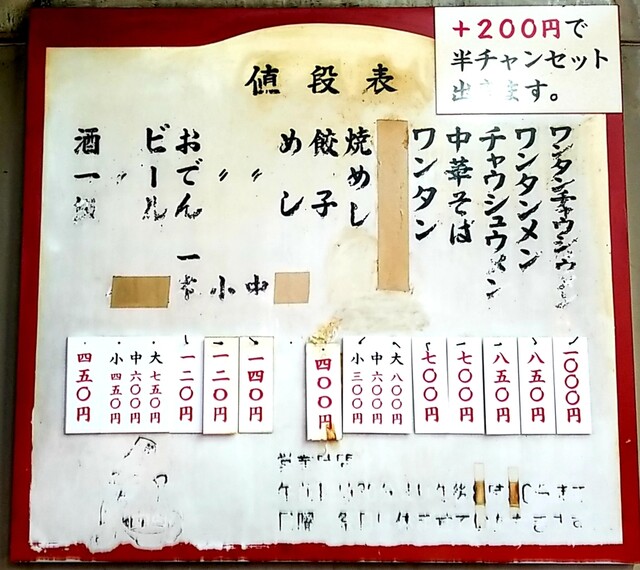 値段表
+200円で
半チャンセット
出ます。
ワンタンチャウシュウ
ワンタンメン
チャウシュウメン
中華そば
ワンタン
焼めし
餃子
めし
〃 中
〃 小
おでん 一
ビール
酒一級
一〇〇〇円
八五〇円
八五〇円
七〇〇円
七〇〇円
大八〇〇円
中六〇〇円
小三〇〇円
四〇〇円
一四〇円
一二〇円
一二〇円
大七五〇円
中六〇〇円
小四五〇円
四五〇円
午後